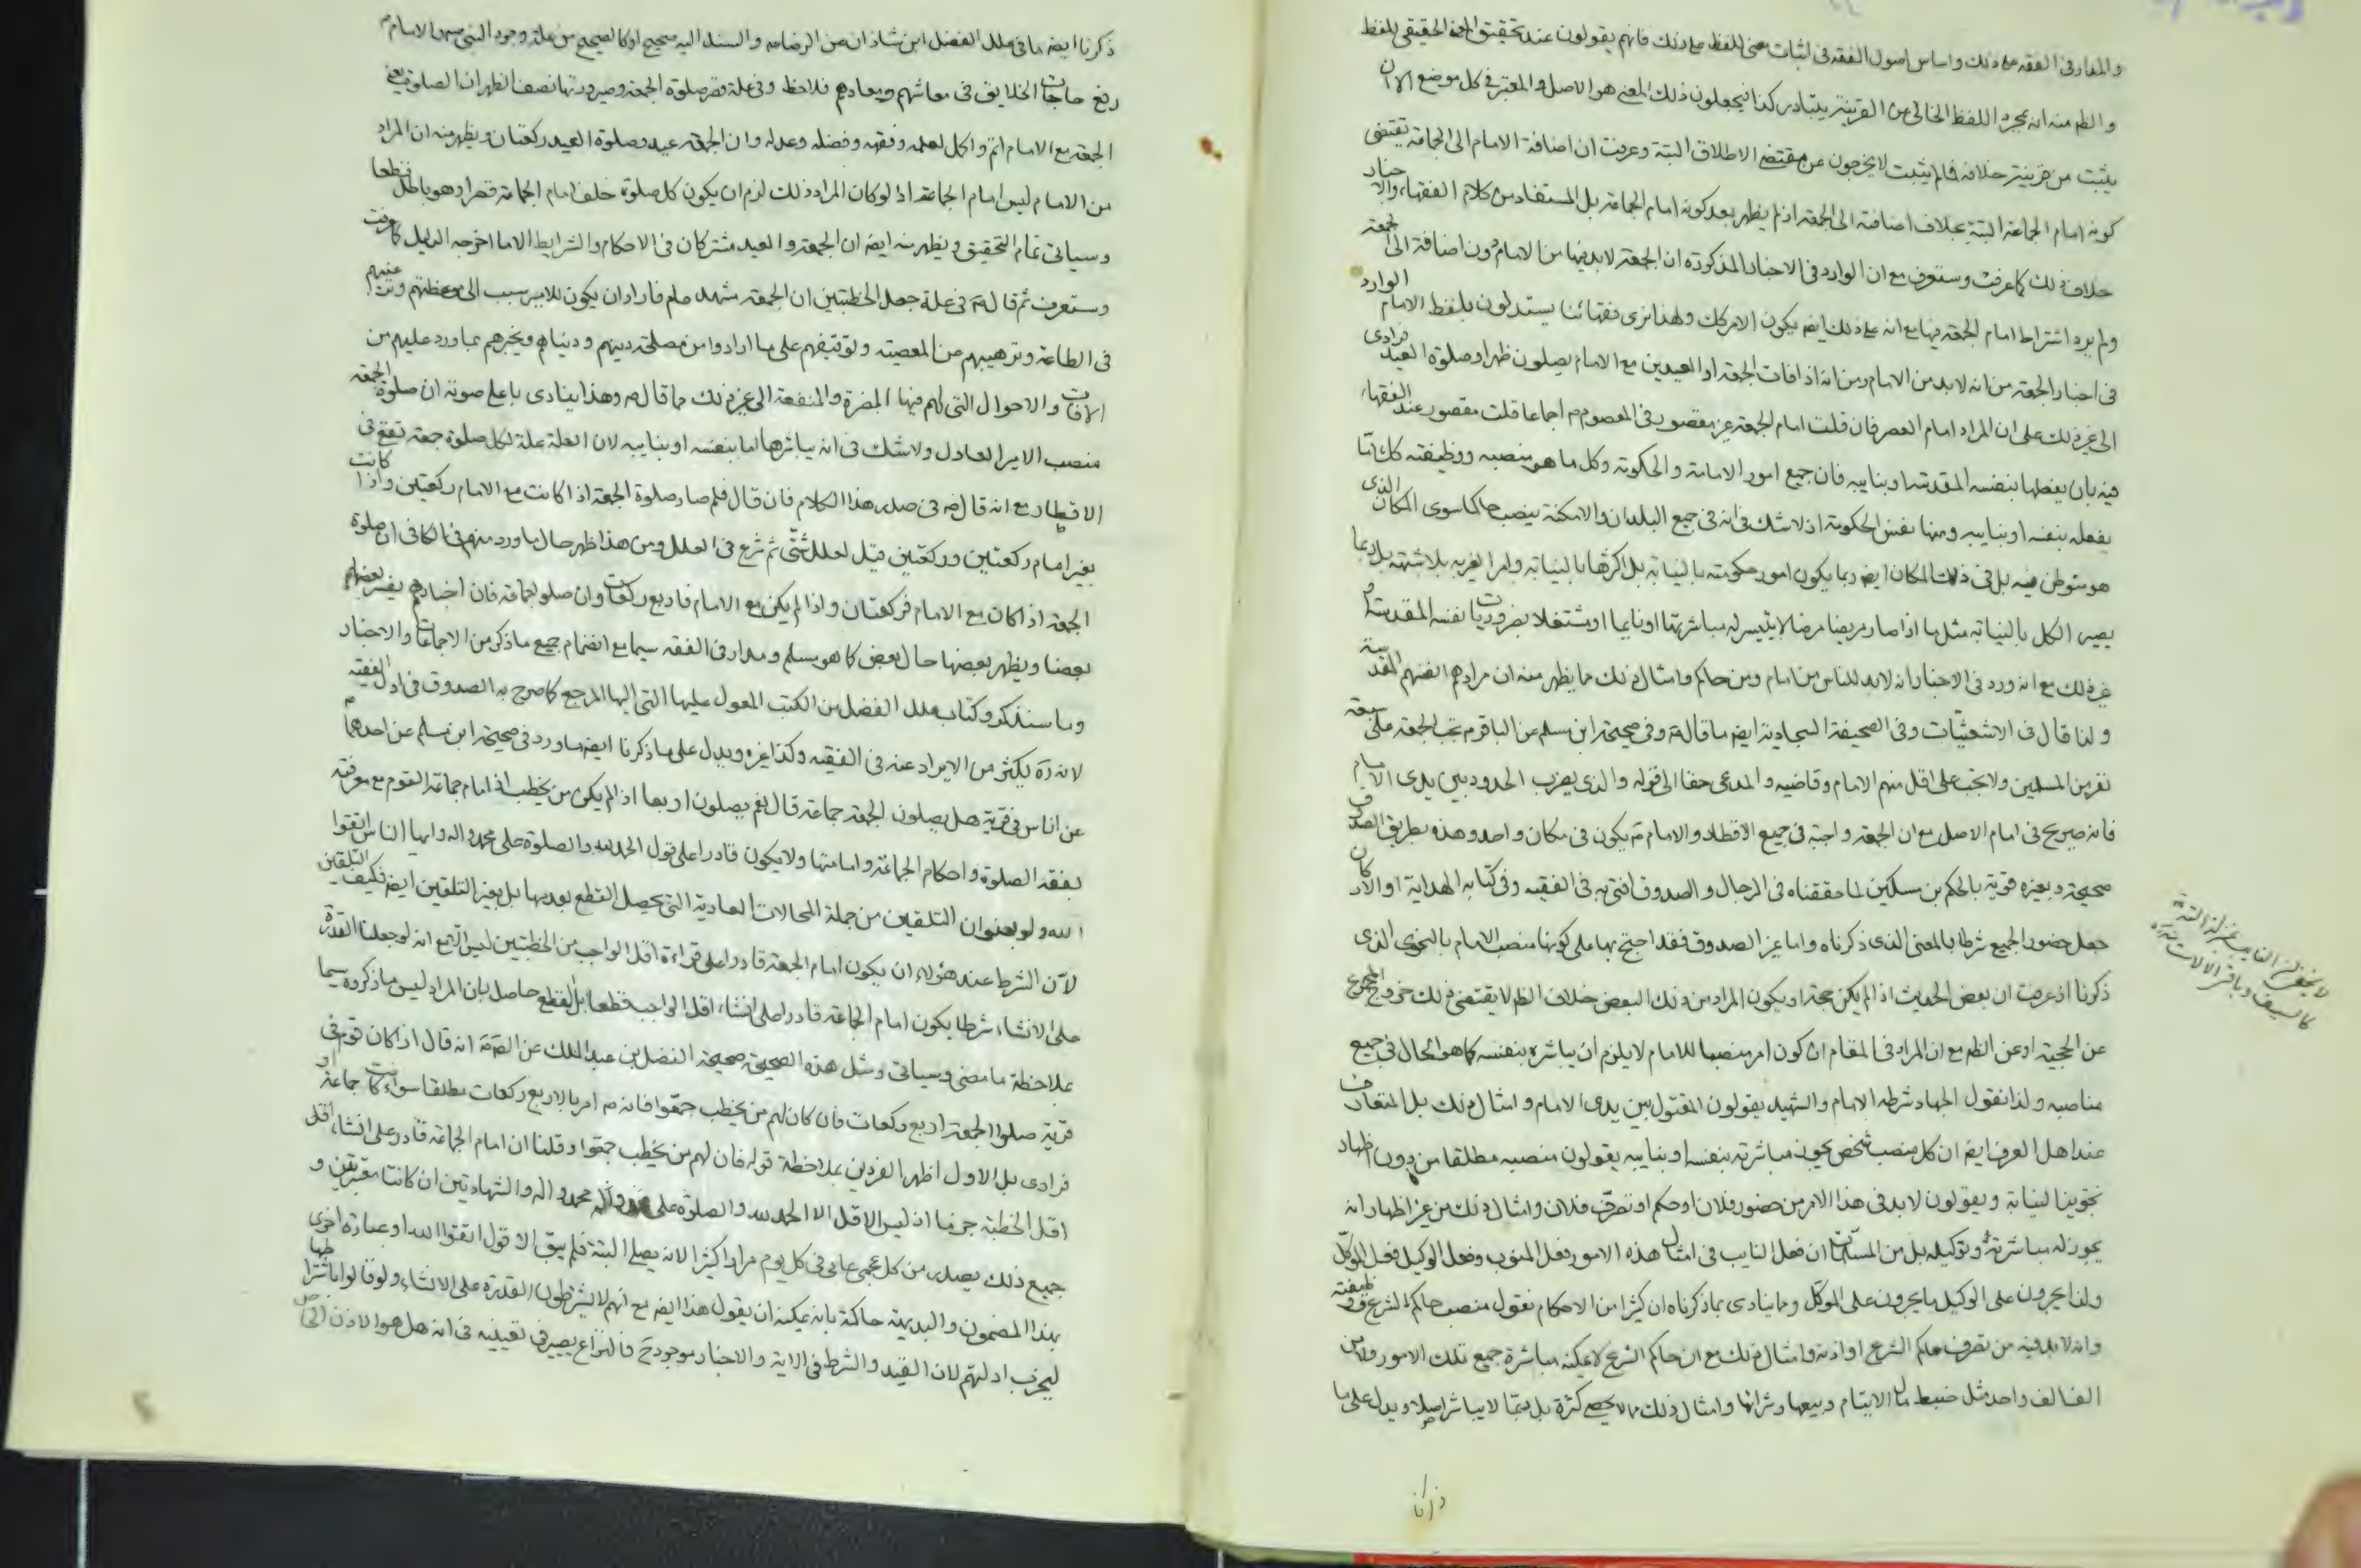 والمدار فى الفقه على ذلك واساس اصول الفقه فى اثبات معنى للفظ على ذلك فانهم يقولون عند تحقيق المعنى الحقيقى للفظ
والظ منه انه بمجرد اللفظ الخالى عن القرينة يتبادر كذا فيجعلون ذلك المعنى هو الاصل والمعتبر فى كل موضع الا ان
يثبت من قرينة خلافه فما لم يثبت لا يخرجون عن مقتضى الاطلاق البتة وعرفت ان اضافة الامام الى الجماعة تقتضى
كونه امام الجماعة البتة بخلاف اضافته الى الجمعة اذ لم يظهر بعد كونه امام الجماعة بل المستفاد من كلام الفقهاء والاخبار
خلاف ذلك كما عرفت وستعرف مع ان الوارد فى الاخبار المذكورة ان الجمعة لابد فيها من الامام دون اضافة الى الجمعة
ولم يرد اشتراط امام الجمعة فيها مع انه على ذلك ايضا يكون الامر كك ولهذا نرى فقهائنا يستدلون بلفظ الامام الوارد
فى اخبار الجمعة من انه لابد من الامام ومن انه اذا فات الجمعة او العيدين مع الامام يصلون ظهرا وصلوة العيد فرادى
الى غير ذلك على ان المراد امام العصر فان قلت امام الجمعة غير مقصور فى المعصوم ع اجماعا قلت مقصور عند الفقهاء
فيه بان يفعلها بنفسه المقدسة او بنايبه فان جميع امور الامامة والحكومة وكل ما هو منصبه ووظيفته كك انما
يفعله بنفسه او بنايبه ومنها نفس الحكومة اذ لا شك فى انه فى جميع البلدان والامكنة ينصب حاكما سوى المكان الذى
هو متوطن فيه بل فى ذلك المكان ايضا ربما يكون امور حكومته بالنيابة بل اكثرها بالنيابة وامرا لغيره بلا شبهة بل ربما
يصير الكل بالنيابة مثل ما اذا صار مريضا مرضا لا يتيسر له مباشرتها او نايما او مشتغلا بضروريات نفسه المقدسة او
غير ذلك مع انه ورد فى الاخبار انه لابد للناس من امام ومن حاكم وامثال ذلك مما يظهر منه ان مرادهم انفسهم المقدسة
ولذا قال فى الاشعثيات وفى الصحيفة السجادية ايضا ما قال ع وفى صحيحة ابن مسلم عن الباقر ع تجب الجمعة على سبعة
نفر من المسلمين ولا تجب على اقل منهم الامام وقاضيه والمدعى حقا الى قوله والذى يضرب الحدود بين يدى الامام
فانه صريح فى امام الاصل مع ان الجمعة واجبة فى جميع الاقطار والامام ع يكون فى مكان واحد وهذه بطريق الصدوق
صحيحة وبغيره قوية بالحكم بن مسكين لما حققناه فى الرجال والصدوق افتى به فى الفقيه وفى كتابه الهداية
جعل حضور الجميع شرطا بالمعنى الذى ذكرناه واما غير الصدوق فقد احتج بها على كونها منصب الامام بالنحو الذى
ذكرنا اذ عرفت ان بعض الحديث اذا لم يكن حجة او يكون المراد من ذلك البعض خلاف الظ لا يقتضى ذلك خروج المجموع
عن الحجية او عن الظ مع ان المراد فى المقام ان كون امر منصبا للامام لا يلزم ان يباشره بنفسه كما هو الحال فى جميع
مناصبه ولذا نقول الجهاد شرطه الامام والشهيد يقولون المقتول بين يدى الامام وامثال ذلك بل المتعارف
عند اهل العرف ايضا ان كل منصب شخص يجوز مباشرته بنفسه او بنايبه يقولون منصبه مطلقا من دون اظهار
تجويز النيابة ويقولون لابد فى هذا الامر من حضور فلان او حكم او تصرف فلان وامثال ذلك من غير اظهار انه
يجوز له مباشرته وتوكيله بل من المسلمات ان فعل النايب فى امثال هذه الامور فعل المنوب وفعل الوكيل فعل الموكل
ولذا يجرون على الوكيل ما يجرون على الموكل ومما ينادى بما ذكرناه ان كثيرا من الاحكام نقول منصب حاكم الشرع ووظيفته
وانه لابد فيه من تصرف حاكم الشرع او اذنه وامثال ذلك مع ان حاكم الشرع لا يمكنه مباشرة جميع تلك الامور ولا من
الف الف واحد مثل ضبط مال الايتام وبيعها وشرائها وامثال ذلك مما لا يحصى كثرة بل ربما لا يباشر اصلا ويدل على ما
ذكرنا
ذكرنا ايضا ما فى علل الفضل ابن شاذان عن الرضا ع والسند اليه صحيح او كالصحيح من علة وجود النبى ص والامام ع
رفع حاجات الخلايق فى معاشهم ومعادهم فلاحظ وفى علة قصر صلوة الجمعة وصيرورتها نصف الظهر ان الصلوة يعنى
الجمعة مع الامام اتم واكمل لعلمه وفقهه وفضله وعدله وان الجمعة عيد وصلوة العيد ركعتان ويظهر منه ان المراد
من الامام ليس امام الجماعة اذ لو كان المراد ذلك لزم ان يكون كل صلوة خلف امام الجماعة قصرا وهو باطل قطعا
وسياتى تمام التحقيق ويظهر منه ايضا ان الجمعة والعيد مشتركان فى الاحكام والشرايط الا ما اخرجه الدليل كما عرفت
وستعرف ثم قال ع فى علة جعل الخطبتين ان الجمعة مشهد عام فاراد ان يكون للامير سبب الى موعظتهم وترغيبهم
فى الطاعة وترهيبهم من المعصية وتوقيفهم على ما ارادوا من مصلحة دينهم ودنياهم ويخبرهم بما ورد عليهم من
الافات والاحوال التى لهم فيها المضرة والمنفعة الى غير ذلك مما قال ع وهذا ينادى باعلى صوته ان صلوة الجمعة
منصب الامير العادل ولا شك فى انه يباشرها اما بنفسه او بنايبه لان العلة علة لكل صلوة جمعة تقع فى
الاقطار مع انه قال ع فى صدر هذا الكلام فان قال فلم صار صلوة الجمعة اذا كانت مع الامام ركعتين واذا كانت
بغير امام ركعتين وركعتين قيل لعلل شتى ثم شرع فى العلل ومن هذا ظهر حال ما ورد منهم فى الكافى ان صلوة
الجمعة اذا كان مع الامام فركعتان واذا لم يكن مع الامام فاربع ركعات وان صلوا جماعة فان اخبارهم يفسر بعضها
بعضا ويظهر بعضها حال بعض كما هو مسلم ومدار فى الفقه سيما مع انضمام جميع ما ذكر من الاجماعات والاخبار
وما سنذكر وكتاب علل الفضل من الكتب المعول عليها التى اليها المرجع كما صرح به الصدوق فى اول الفقيه
لانه ره يكثر من الايراد عنه فى الفقيه وكذا غيره ويدل على ما ذكرنا ايضا ما ورد فى صحيحة ابن مسلم عن احدهما ع
عن اناس فى قرية هل يصلون الجمعة جماعة قال نعم يصلون اربعا اذا لم يكن من يخطب اذ امام جماعة القوم مع معرفته
بفقه الصلوة واحكام الجماعة وامامتها ولا يكون قادرا على قول الحمد لله والصلوة على محمد واله وايها الناس اتقوا
الله ولو بعنوان التلقين من جملة المحالات العادية التى يحصل القطع بعدمها بل بغير التلقين ايضا فكيف التلقين
لان الشرط عند هؤلاء ان يكون امام الجمعة قادرا على قراءة اقل الواجب من الخطبتين ليس الا مع انه لو جعلنا القدرة
على الانشاء شرطا يكون امام الجماعة قادرا على انشاء اقل الواجب قطعا بل القطع حاصل بان المراد ليس ما ذكروه سيما
بملاحظة ما مضى وسياتى ومثل هذه الصحيحة صحيحة الفضل بن عبد الملك عن الص ع انه قال اذا كان قوم فى
قرية صلوا الجمعة اربع ركعات فان كان لهم من يخطب جمعوا فانه ع امر بالاربع ركعات مطلقا سواء كانت جماعة او
فرادى بل الاول اظهر الفردين بملاحظة قوله فان لهم من يخطب جمعوا وقلنا ان امام الجماعة قادر على انشاء اقل
اقل الخطبة جزما اذ ليس الاقل الا الحمد لله والصلوة على محمد واله والشهادتين ان كانتا معتبرتين و
جميع ذلك يصدر من كل عجمى عامى فى كل يوم مرارا كثيرا لانه يصلى البتة فلم يبق الا قول اتقوا الله او عبارة اخرى
بهذا المضمون والبديهة حاكمة بانه يمكنه ان يقول هذا ايضا مع انهم لا يشترطون القدرة على الانشاء ولو قالوا باشتراطها
ليخرب ادلتهم لان القيد والشرط فى الاية والاخبار موجود ح فالنزاع يصير فى تعيينه فى انه هل هو الاذن